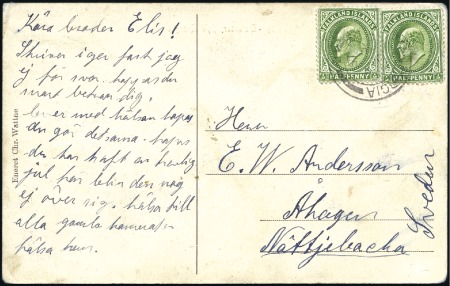 Kära broder Elis!
Skriver igen fast jag
ej får svar hoppas du
snart betänar dig.
lever med hälsan hopas
du gör detsama. hopas
du har haft en trevlig
jul
ej över sig. hälsa till
alla gamla kamrater
hälsa hem.
Eneret Chr. Wattne
FALKLAND ISLANDS
HALFPENNY
FALKLAND ISLANDS
HALFPENNY
GIA
Herr
E. W. Andersson
Åhagen
Nättjebacka
Sveden